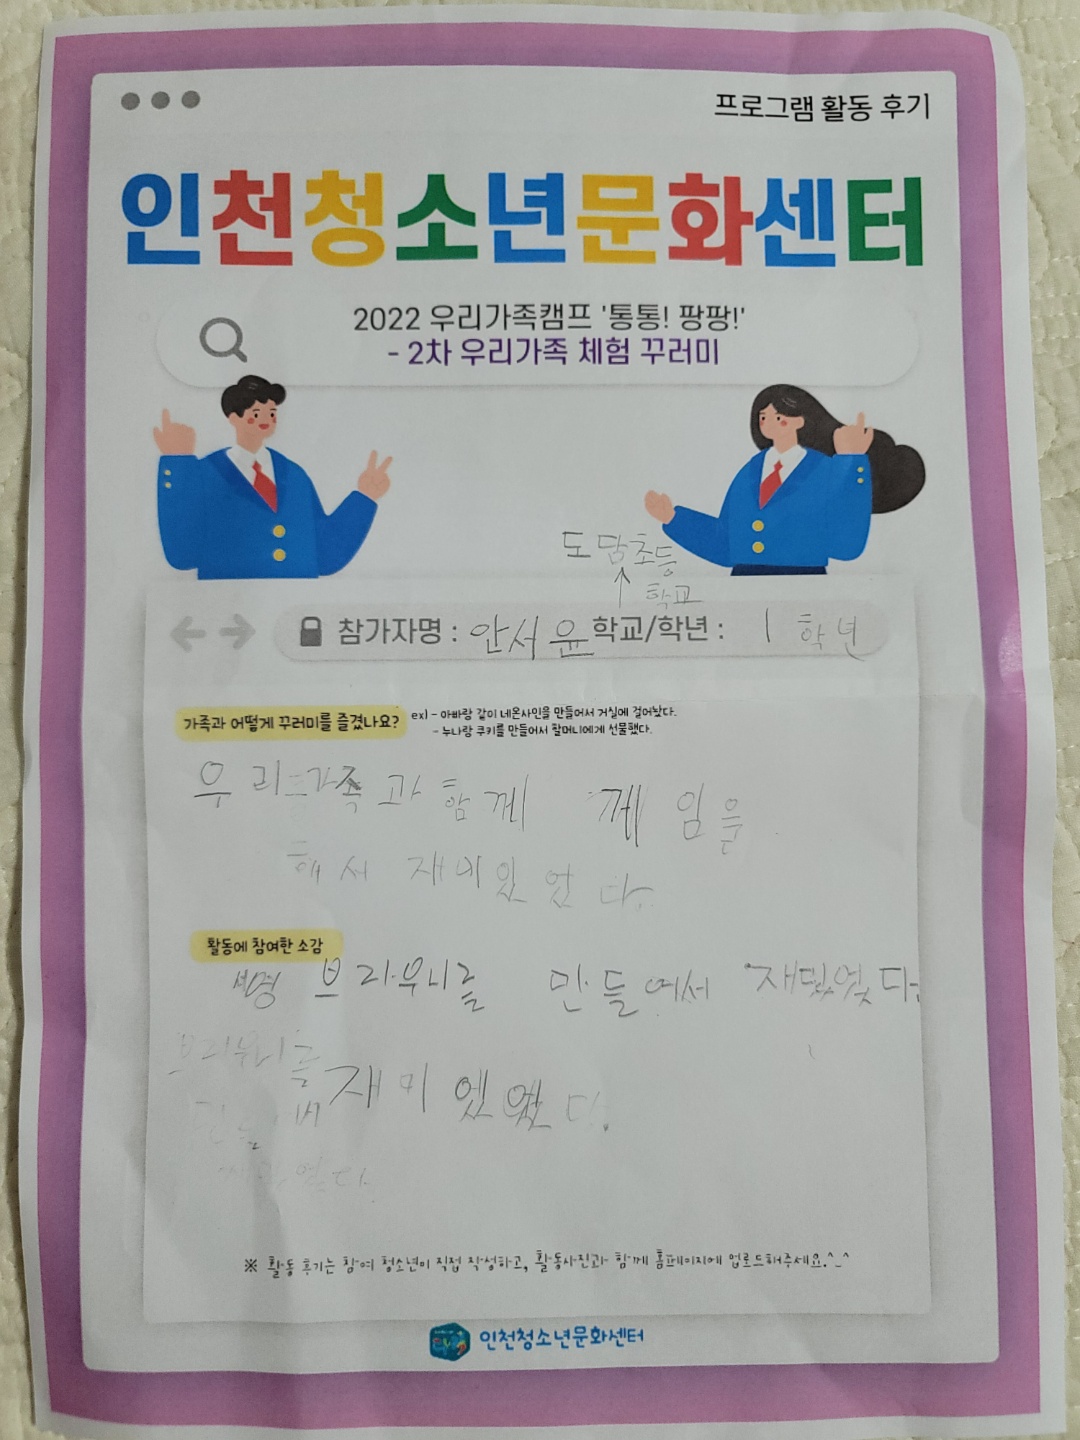 프로그램 활동 후기
인천청소년문화센터
2022 우리가족캠프 '통통! 팡팡!'
- 2차 우리가족 체험 꾸러미
도담초등
학교
참가자명 : 안서윤 학교/학년 : 1 학년
가족과 어떻게 꾸러미를 즐겼나요? ex) - 아빠랑 같이 네온사인을 만들어서 거실에 걸어놨다.
- 누나랑 쿠키를 만들어서 할머니에게 선물했다.
우리 가족과 함께 께임을
해서 재미있었다.
활동에 참여한 소감
브라우니를 만들어서 재밌었다.
브라우니를
재미
※ 활동 후기는 참여 청소년이 직접 작성하고, 활동사진과 함께 홈페이지에 업로드해주세요.^_^
인천청소년문화센터